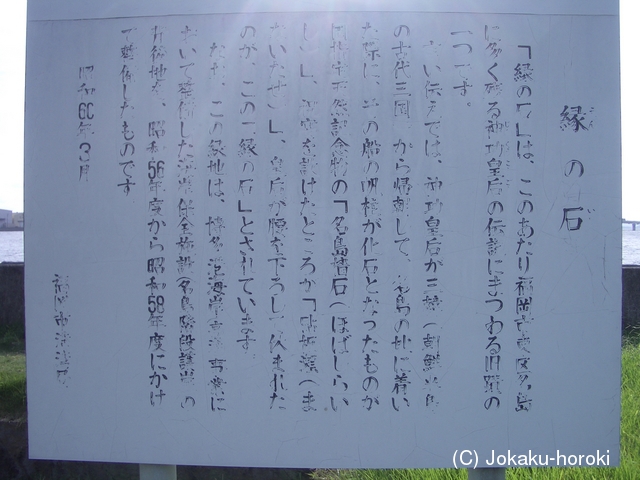 縁の石
「縁の石」は、このあたり福岡市東区名島
に多く残る神功皇后の伝説にまつわる旧蹟の
一つです。
言い伝えでは、神功皇后が三韓（朝鮮半島
の古代三国）から帰朝して、名島の地に着い
た際に、その船の帆柱が化石となったものが
国指定天然記念物の「名島檣石（ほばしらい
し）」、
を設けたところが「
（ま
」、皇后が腰を下ろして休まれた
のが、この「縁の石」とされています。
なお、この緑地は、博多湾
において整備した
の
緑地を、昭和56年度から昭和58年度にかけ
て整備したものです。
昭和60年3月
福岡市港湾局
(C) Jokaku-horoki